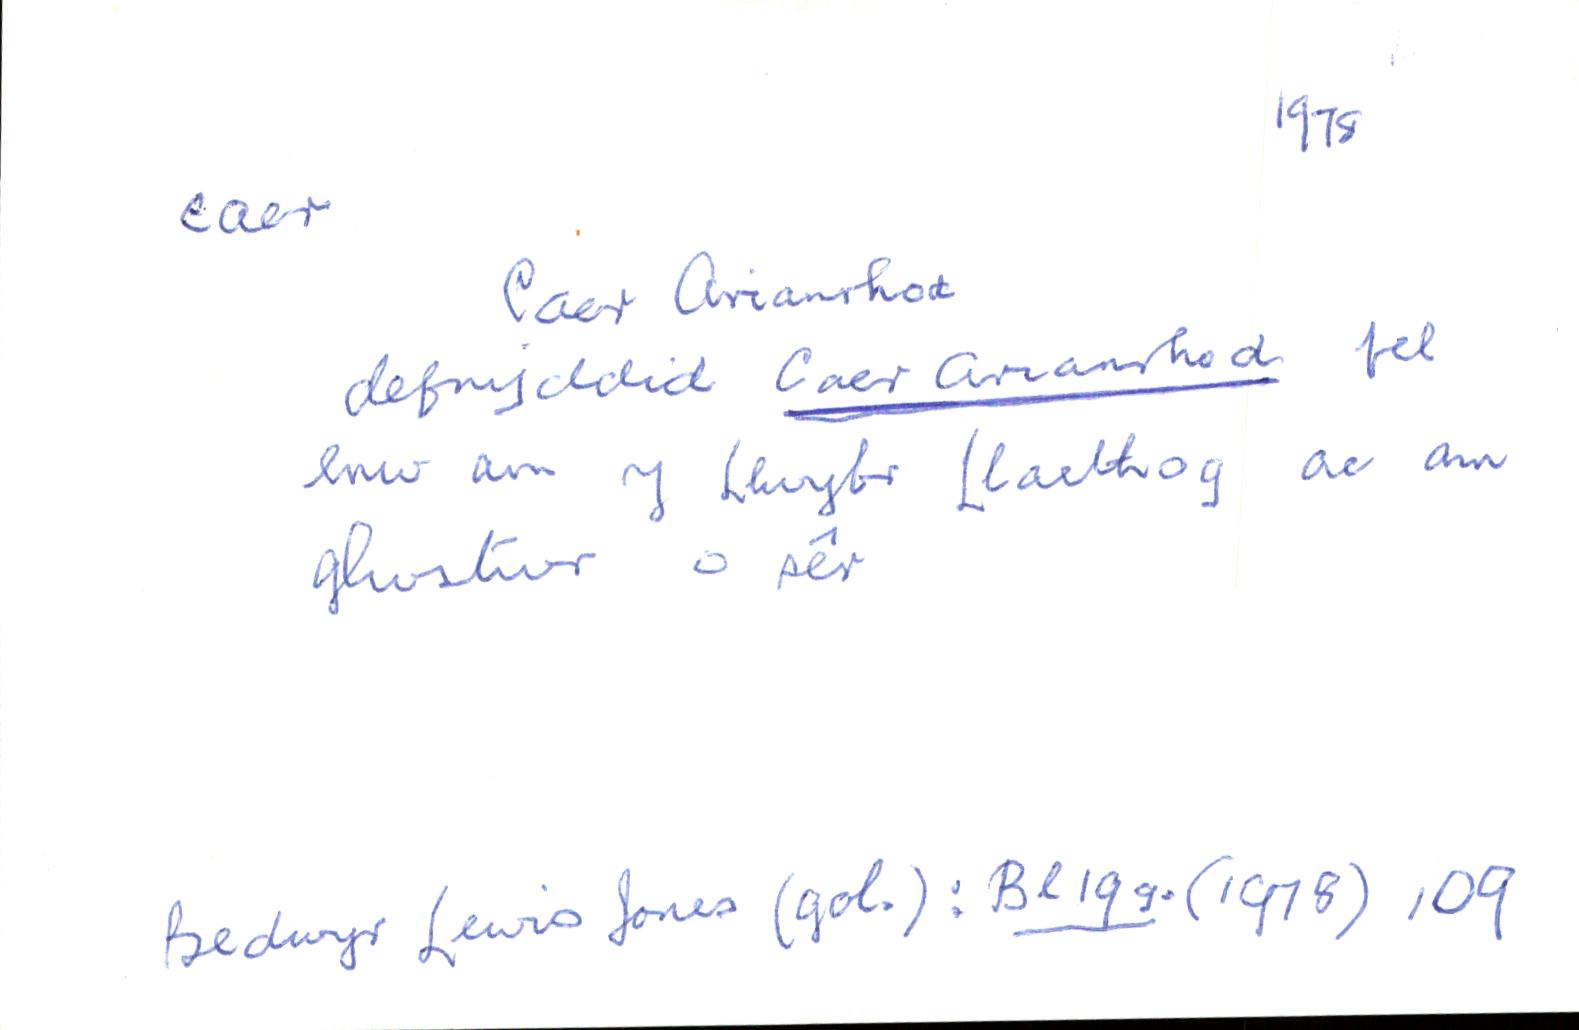 1978
caer
Caer Arianrhod
defnyddid Caer Arianrhod fel
enw am y Llwybr Llaethog ac am
glwstwr o sêr
Bedwyr Lewis Jones (gol.): Bl 19g. (1978), 09